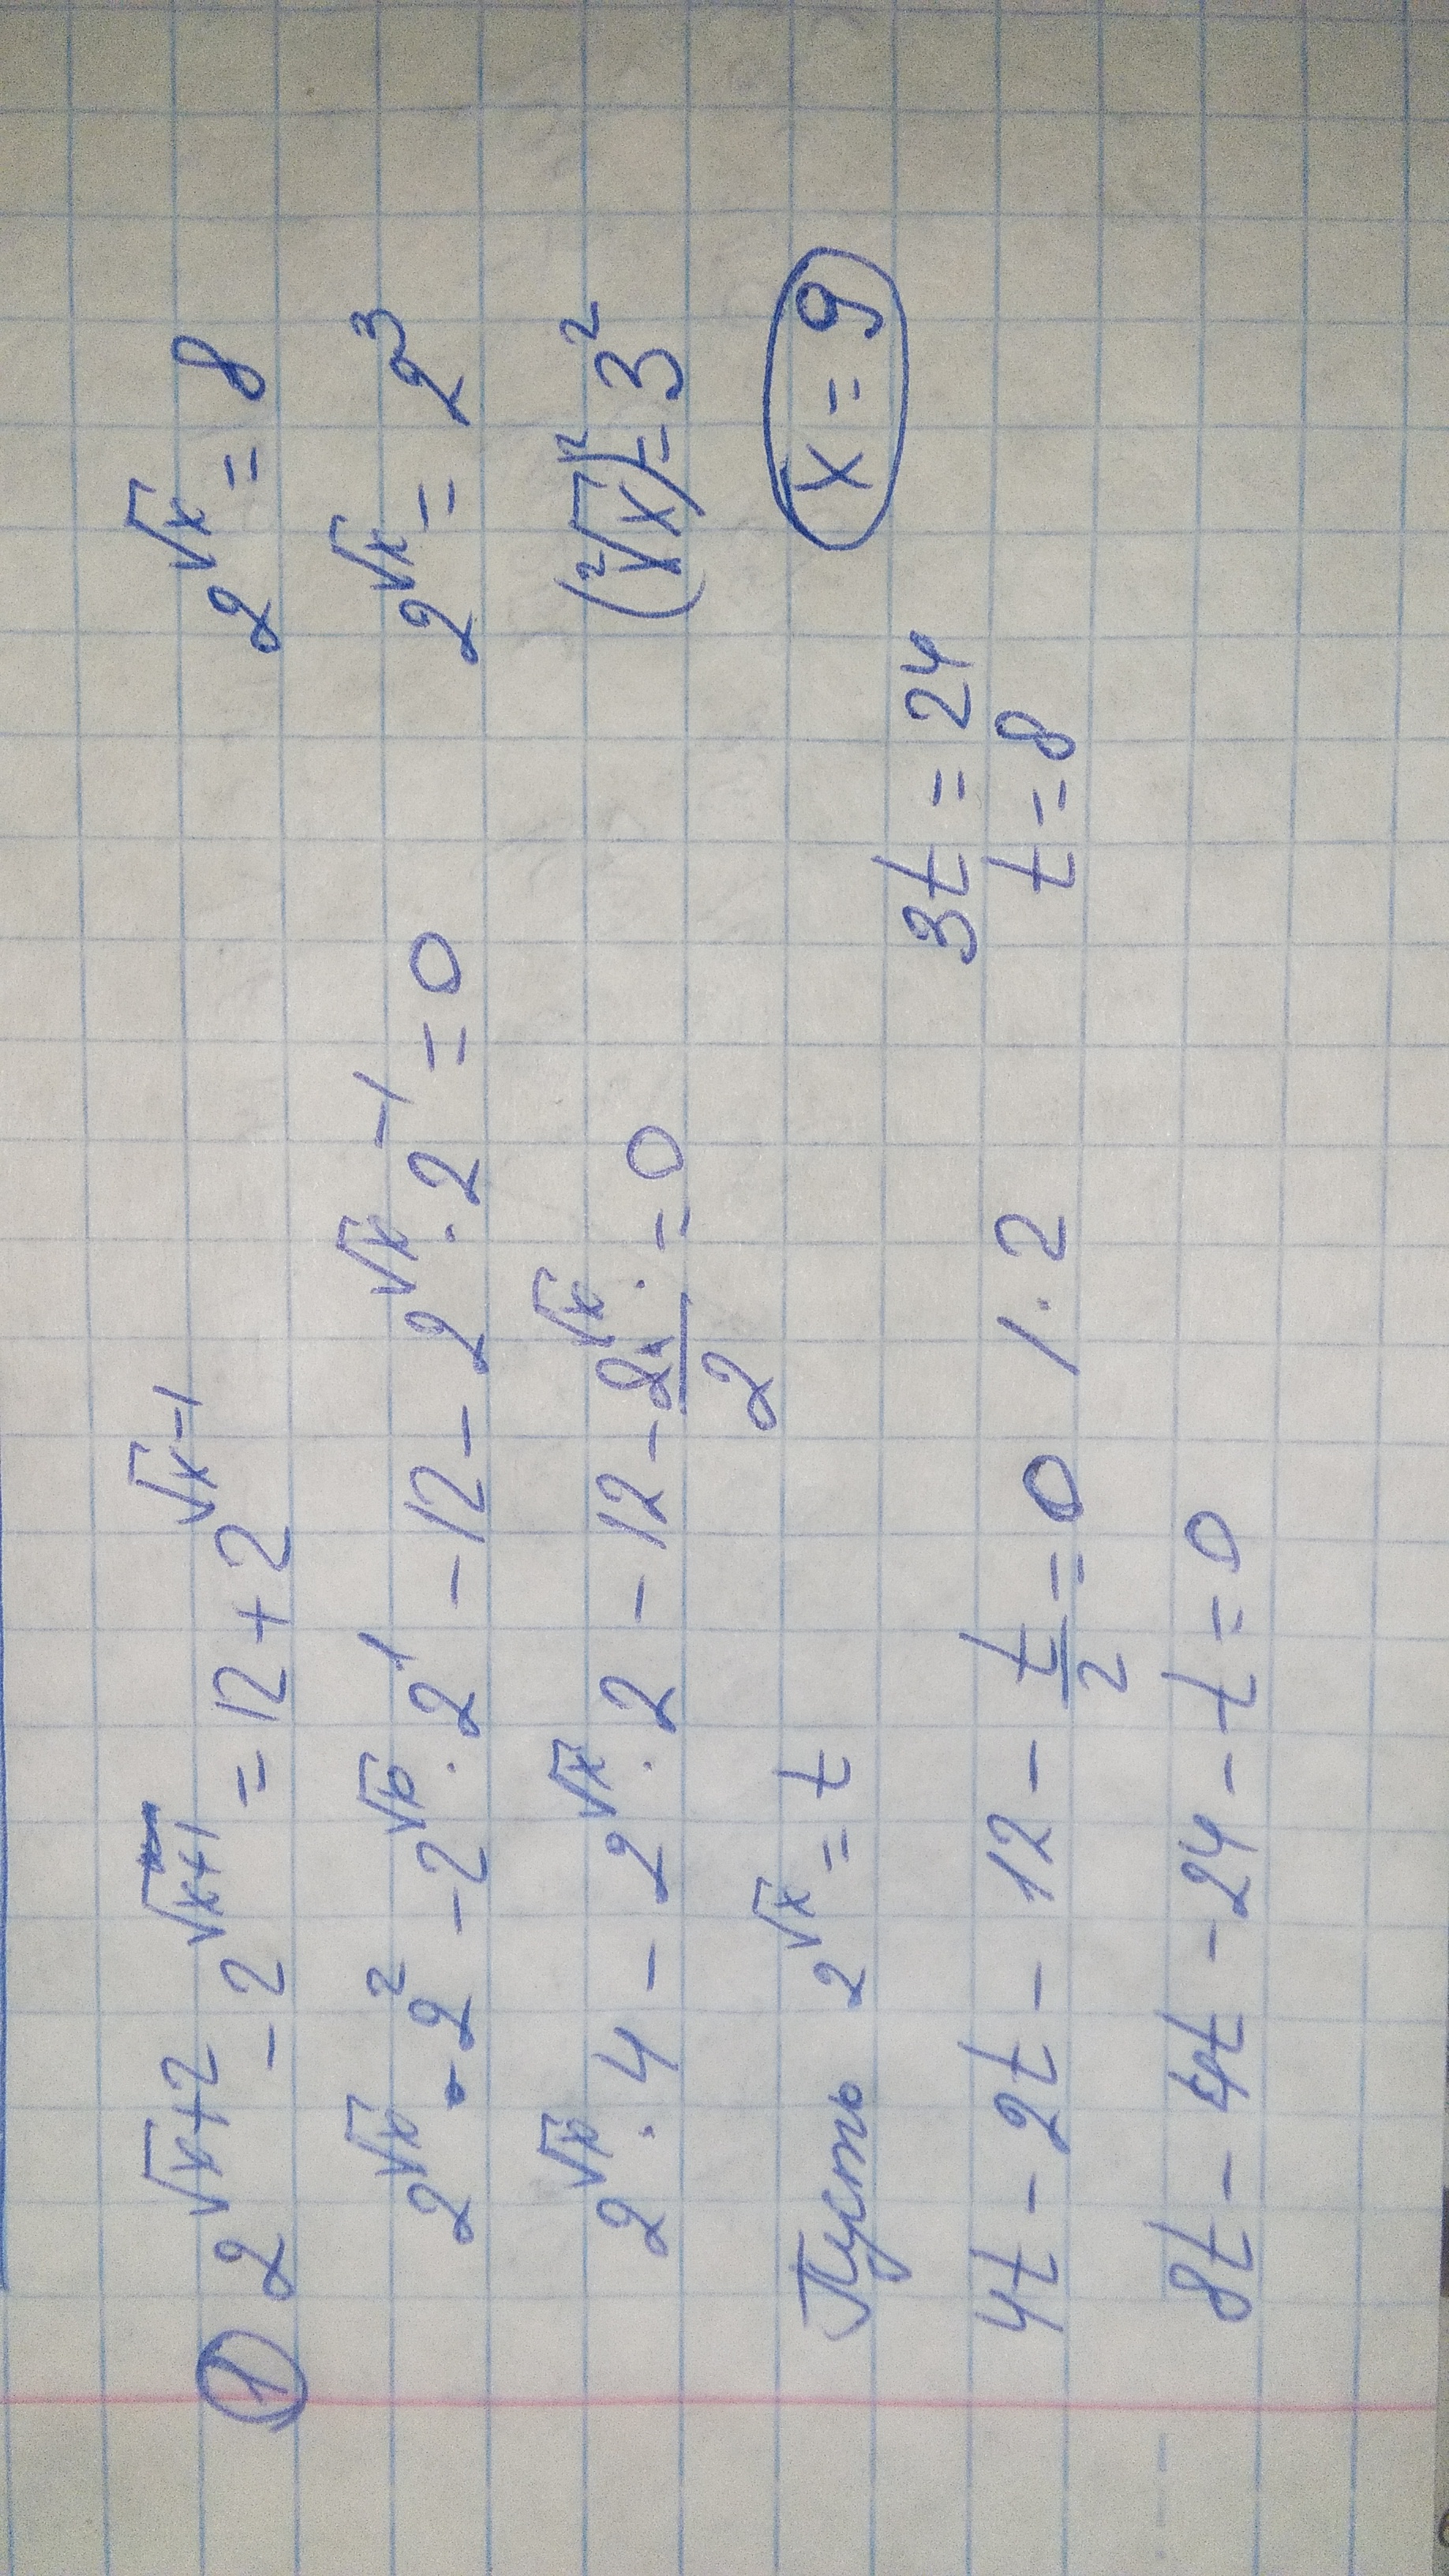 ① 2^{√x+2} - 2^{√x+1} = 12 + 2^{√x-1}
2^{√x} · 2² - 2^{√x} · 2¹ - 12 - 2^{√x} · 2^{-1} = 0
2^{√x} · 4 - 2^{√x} · 2 - 12 - \frac{2^{√x}}{2} · = 0
Пусть 2^{√x} = t
4t - 2t - 12 - \frac{t}{2} = 0 / · 2
8t - 4t - 24 - t = 0
3t = 24
t = 8
2^{√x} = 8
2^{√x} = 2³
(²√x)² = 3²
x = 9